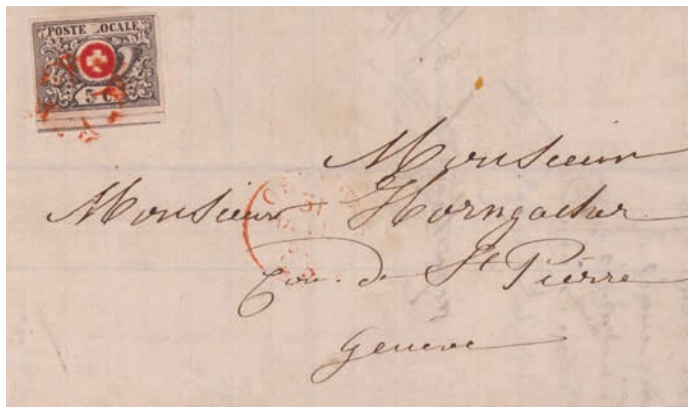 POSTE LOCALE
5 C
Monsieur
Monsieur Horngacher
Cour de St Pierre
Genève